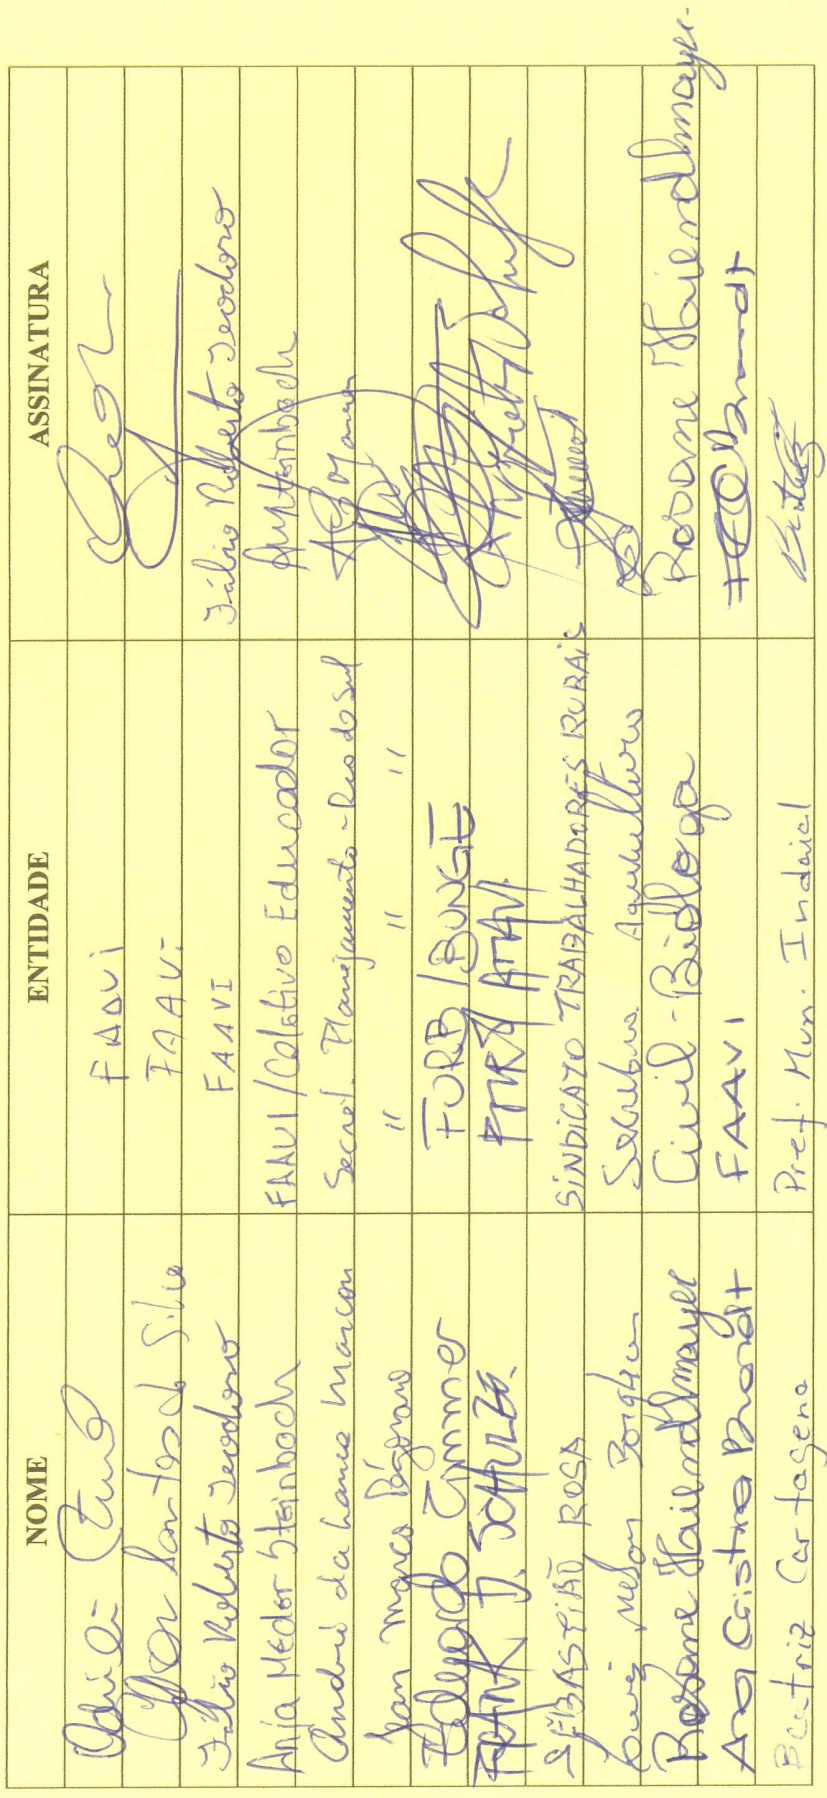 NOME ENTIDADE ASSINATURA
FAAVi
Santos da Silva FAAVi
Fábio Roberto Teodoro FAAVI Fábio Roberto Teodoro
Anja Meder Steinbach FAAVI/Coletivo Educador AMSteinbach
André da Cunha Marcon Secret. Planejamento - Rio do Sul
Ivan Marco " " "
Eduardo Zimmer FURB/BUNGE
FRANK D. SCHULZE.
SEBASTIÃO ROSA SINDICATO TRABALHADORES RURAIS
Luiz Nelson Agricultura
Rosane Haiendlmayer Civil - Bióloga Rosane Haiendlmayer
Ana Cristina Brandt FAAVI
Beatriz Cartagena Pref. Mun. Indaial Beatriz